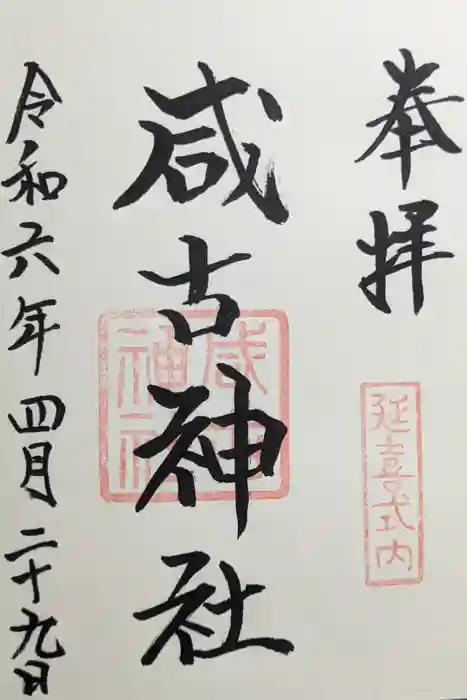 奉拝
延喜式内
咸古神社
咸古神社
令和六年四月二十九日